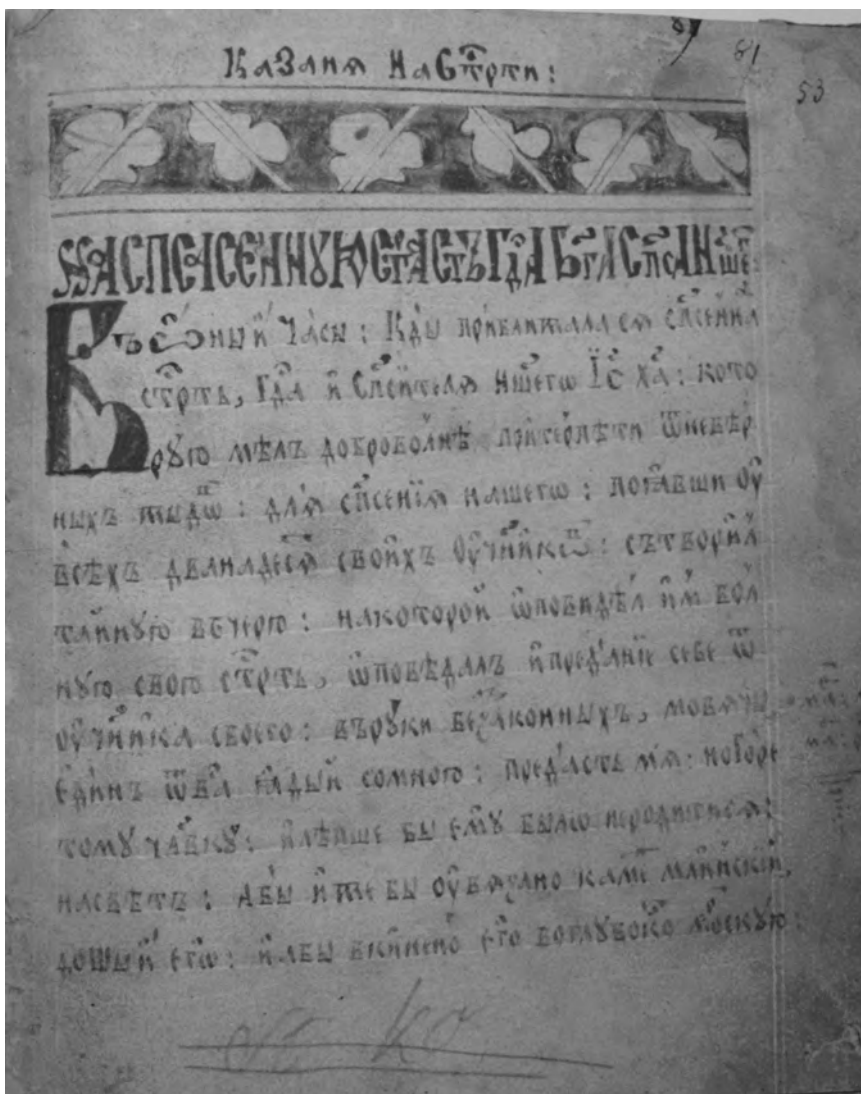 Казанꙗ На Стрⷭти:
81
53
На Спасеннꙋю Стрⷭасть Гдⷭа Бг҃а Спⷭса Ншⷢ҇е:
Въ ѡный часы: Кды приближалася спⷭсеннаꙗ
стрⷭть, Гдⷭа и Спⷭсителѧ ншегѡ Іс҃ Ха҃: кото
рꙋю мѣлъ доброволнѣ притерпѣти ѿ невѣр
ныхъ жидѡⷡ: длѧ спⷭсеніѧ нашегѡ:
всѣхъ дванадесѧⷮ своихъ оучн҃икѡⷡ: сътворил
тайнꙋю вечерю: на которой ѡповидѣл им вол
нꙋю свою стрⷭть, ѡповѣдалъ и преданіе себе ѿ
оучн҃ика своего: въ рꙋки беззаконныхъ, мовѧчи
единъ ѿ васⷭ ꙗдый со мною: предасть мѧ: но горе
томꙋ члвкꙋ: и лѣпше бы емꙋ было не родитисѧ:
на свѣтъ: абы и же бы оувѧзано камеⷩ млинскій,
до шыи егѡ: и абы вкинено его во глꙋбокꙋ морскꙋю: